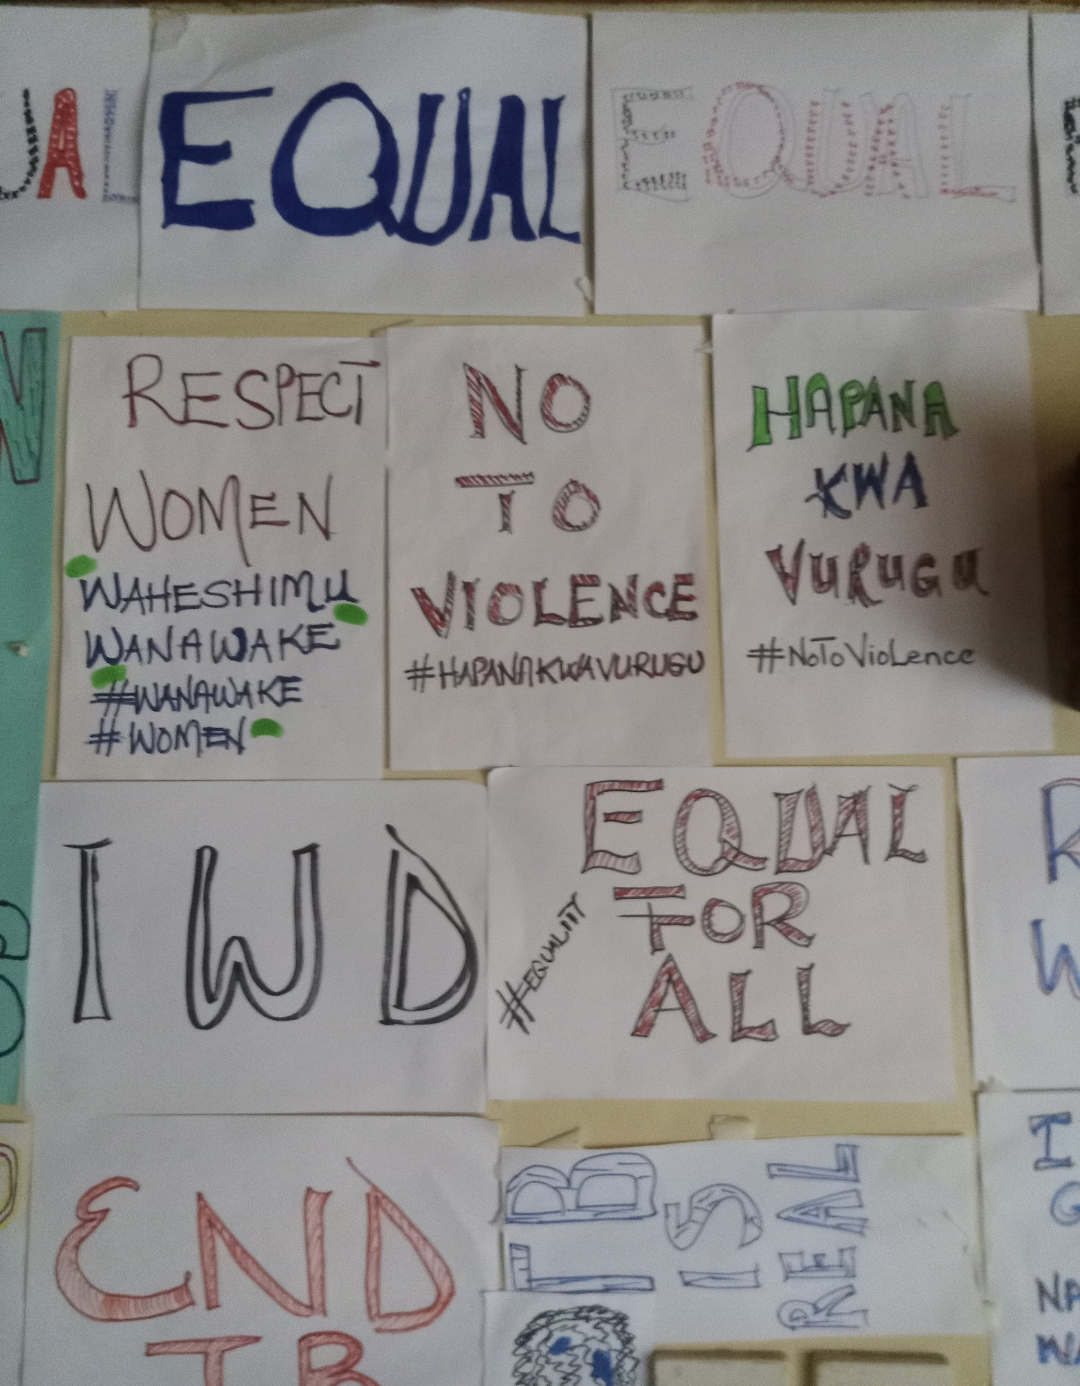 EQUAL
EQUAL
RESPECT
WOMEN
WAHESHIMU
WANAWAKE
#WANAWAKE
#WOMEN
NO
TO
VIOLENCE
#HAPANAKWAVURUGU
HAPANA
KWA
VURUGU
#NoToVioLence
IWD
EQUAL
FOR
ALL
#EQUALITY
END
TB
TB
IS
REAL